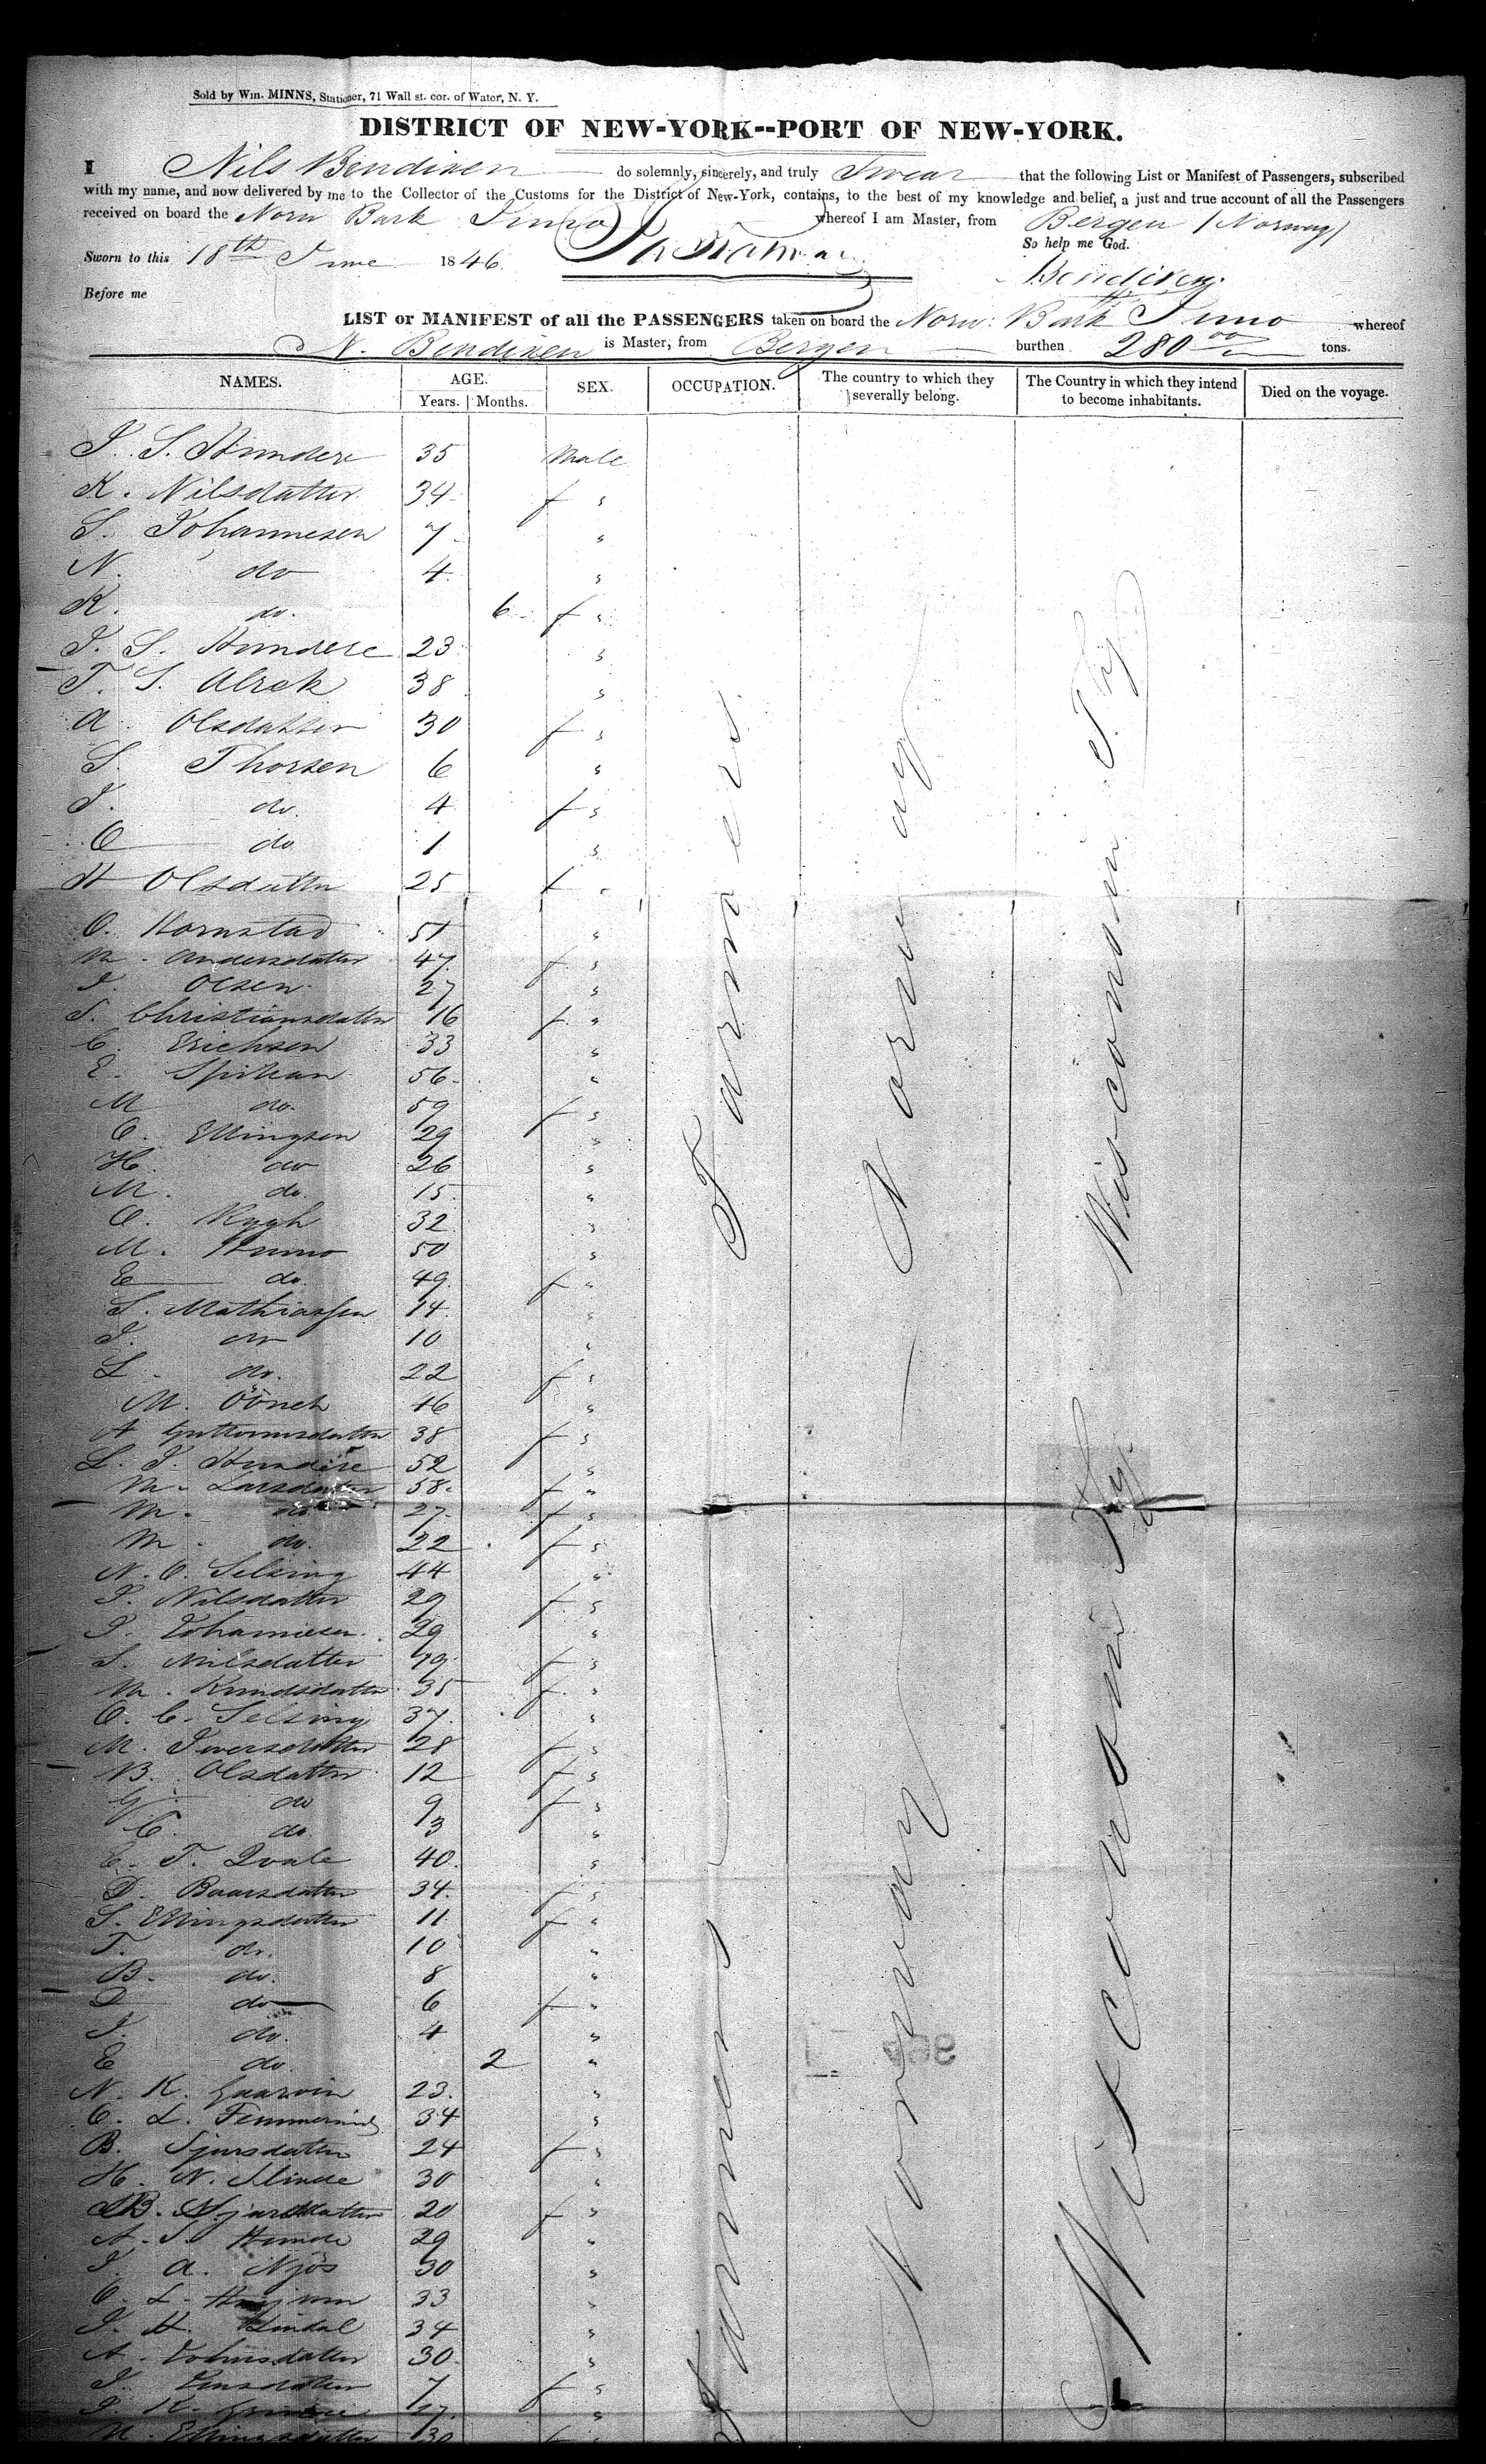 Sold by Wm. MINNS, Stationer, 71 Wall st. cor. of Water, N. Y.
DISTRICT OF NEW-YORK--PORT OF NEW-YORK.
I Nils Bendixen do solemnly, sincerely, and truly Swear that the following List or Manifest of Passengers, subscribed
with my name, and now delivered by me to the Collector of the Customs for the District of New-York, contains, to the best of my knowledge and belief, a just and true account of all the Passengers
received on board the Norw Bark Juno whereof I am Master, from Bergen (Norway)
So help me God.
Sworn to this 18th June 1846.
Bendixen
Before me
LIST or MANIFEST of all the PASSENGERS taken on board the Norw: Bark Juno whereof
N. Bendixen is Master, from Bergen burthen 280 00 tons.
NAMES. AGE. Years. Months. SEX. OCCUPATION. The country to which they severally belong. The Country in which they intend to become inhabitants. Died on the voyage.
J. S. Hundere 35 Male
K. Nilsdatter 34 f "
S. Johannesen 7 "
N. do 4 "
K. do. 6 f "
J. S. Hundere 23 "
T. S. Alrek 38 "
A Olsdatter 30 f "
S. Thorsen 6 "
J. do. 4 f "
O do 1 "
H Olsdatter 25 f "
O. Kornstad 51 "
M. Andersdatter 47 f "
J. Olsen 27 "
S. Christiansdatter 16 f "
C. Erichsen 33 "
E. 56 "
M do. 59 f "
O. Ellingsen 29 "
H. do 26 "
M. do. 15 "
O. Rygh 32 "
M. 50 "
E do. 49 f "
S. Mathiassen 14 "
J. do 10 "
L. do. 22 f "
M. 16 "
A Guttormsdatter 38 f "
L. J. Hundere 52 "
M. Larsdatter 58 f "
M. do 27 f "
M. do. 22 f "
N. O. Selsing 44 "
J. Nilsdatter 29 f "
J. Johannesen 29 "
S. Nilsdatter 19 f "
M. Knudsdatter 35 f "
O. C. Selsing 37 "
M. Iversdatter 28 f "
B. Olsdatter 12 f "
G. do 9 f "
C. do. 3 "
E. T. Qvale 40 "
D. Baarsdatter 34 f "
S. Ellingsdatter 11 f "
T. do. 10 "
B. do. 8 "
D do 6 f "
J. do. 4 "
E do. 2 "
N. K. 23 "
O. L. 34 "
B. Sjursdatter 24 f "
H. N. Slinde 30 "
B. Sjursdatter 20 f "
A. S. 29 "
J. A. Njøs 30 "
O. L. 33 "
J. H. 34 "
A. 30 "
J. 7 f "
J. K. 17 "
N. Ellingsdatter 30
Farmers
Norway
Wisconsin Ty
Farmers
Norway
Wisconsin Ty.